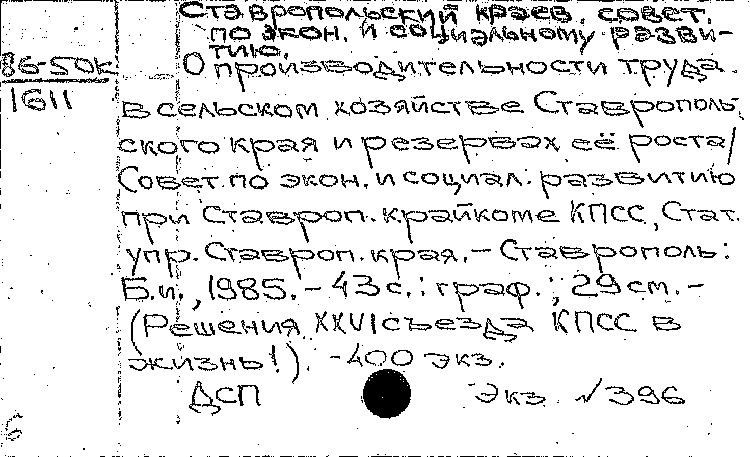 Ставропольский краев. совет.
по экон. и социальному разви-
тию.
86-50к
О производительности труда
1611
в сельском хозяйстве Ставрополь-
ского края и резервах её роста/
Совет по экон. и социал. развитию
при Ставроп. крайкоме КПСС, Стат.
упр. Ставроп. края. - Ставрополь:
Б.и., 1985. - 43 с.: граф.; 29 см. -
(Решения XXVI съезда КПСС в
жизнь!). - 400 экз.
ДСП Экз. № 396
6